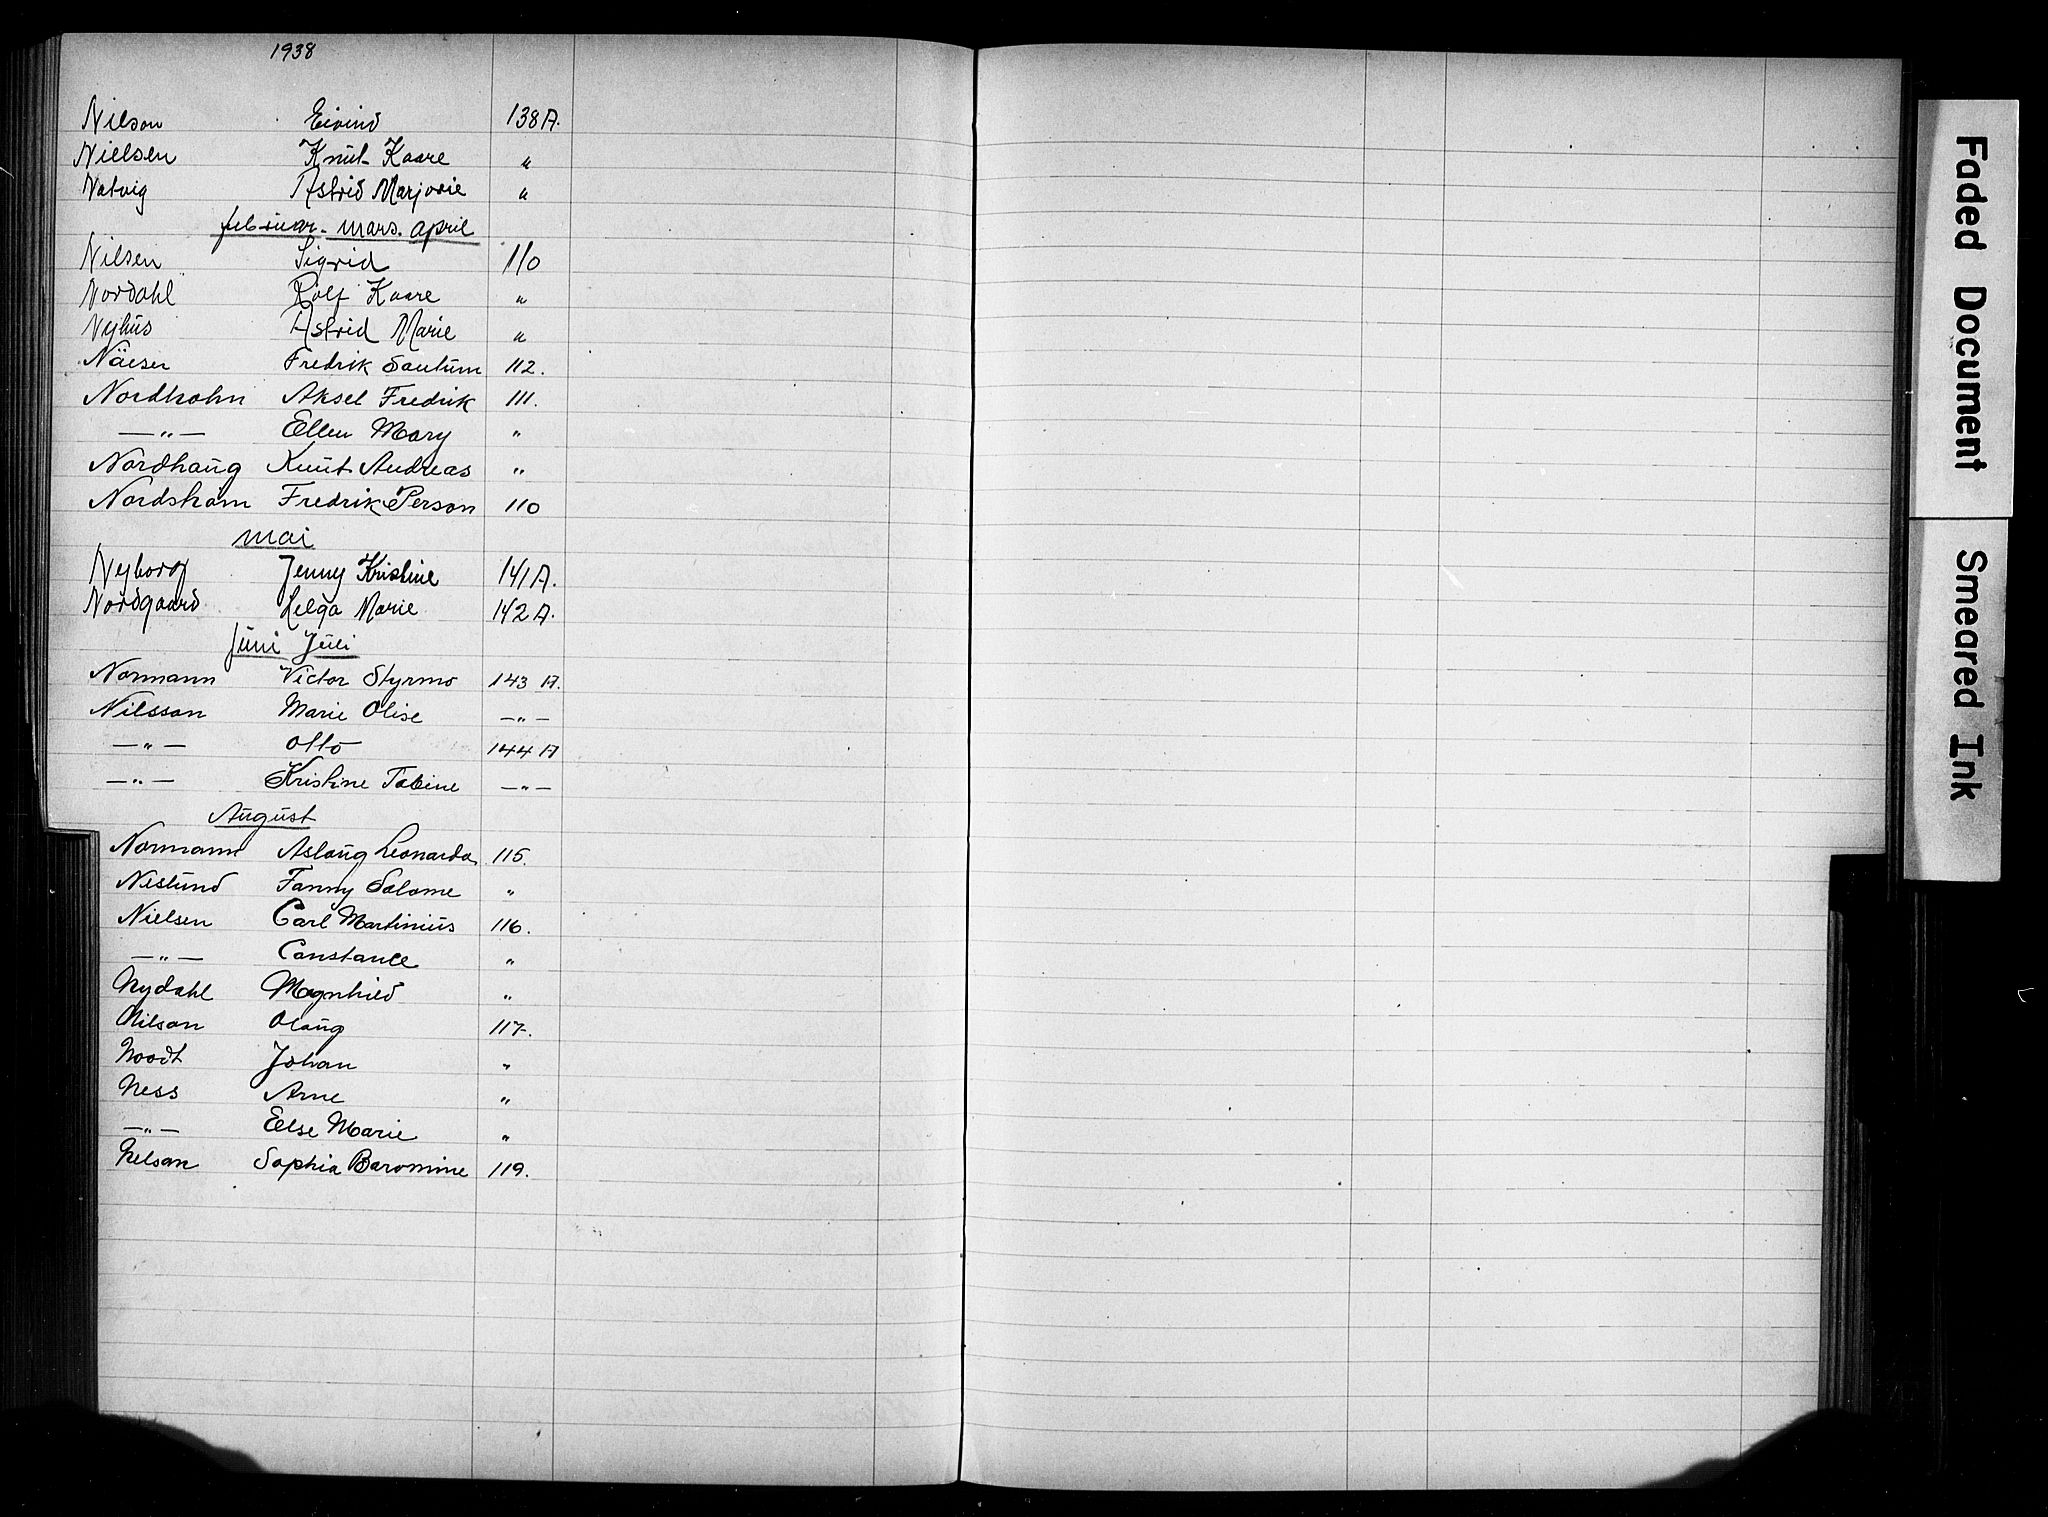 1938
Nilson Eivind 138 A.
Nielsen Knut Kaare "
Natvig Astrid Marjorie "
februar. mars. april
Nilsen Sigrid 110
Nordahl Rolf Kaare "
Nyhus Astrid Marie "
Näeser Fredrik 112.
Aksel Fredrik 111.
—"— Ellen Mary "
Nordhaug Knut Andreas "
Fredrik Person 110
mai
Nyborg Jenny Kristine 141 A.
Nordgaard Helga Marie 142 A.
Juni Juli
Normann Victor Styrmo 143 A.
Nilsson Marie Olise —"—
—"— Otto 144 A
—"— Kristine Tobine —"—
August
Normann Aslaug Leonarda 115.
Neslund Fanny Salome "
Nielsen Carl Martinius 116.
—"— Constance "
Nydahl Magnhild "
Nilson Olaug 117.
Noodt Johan "
Ness Arne "
—"— Else Marie "
Nelson Sophia Baromine 119.
Faded Document
Smeared Ink